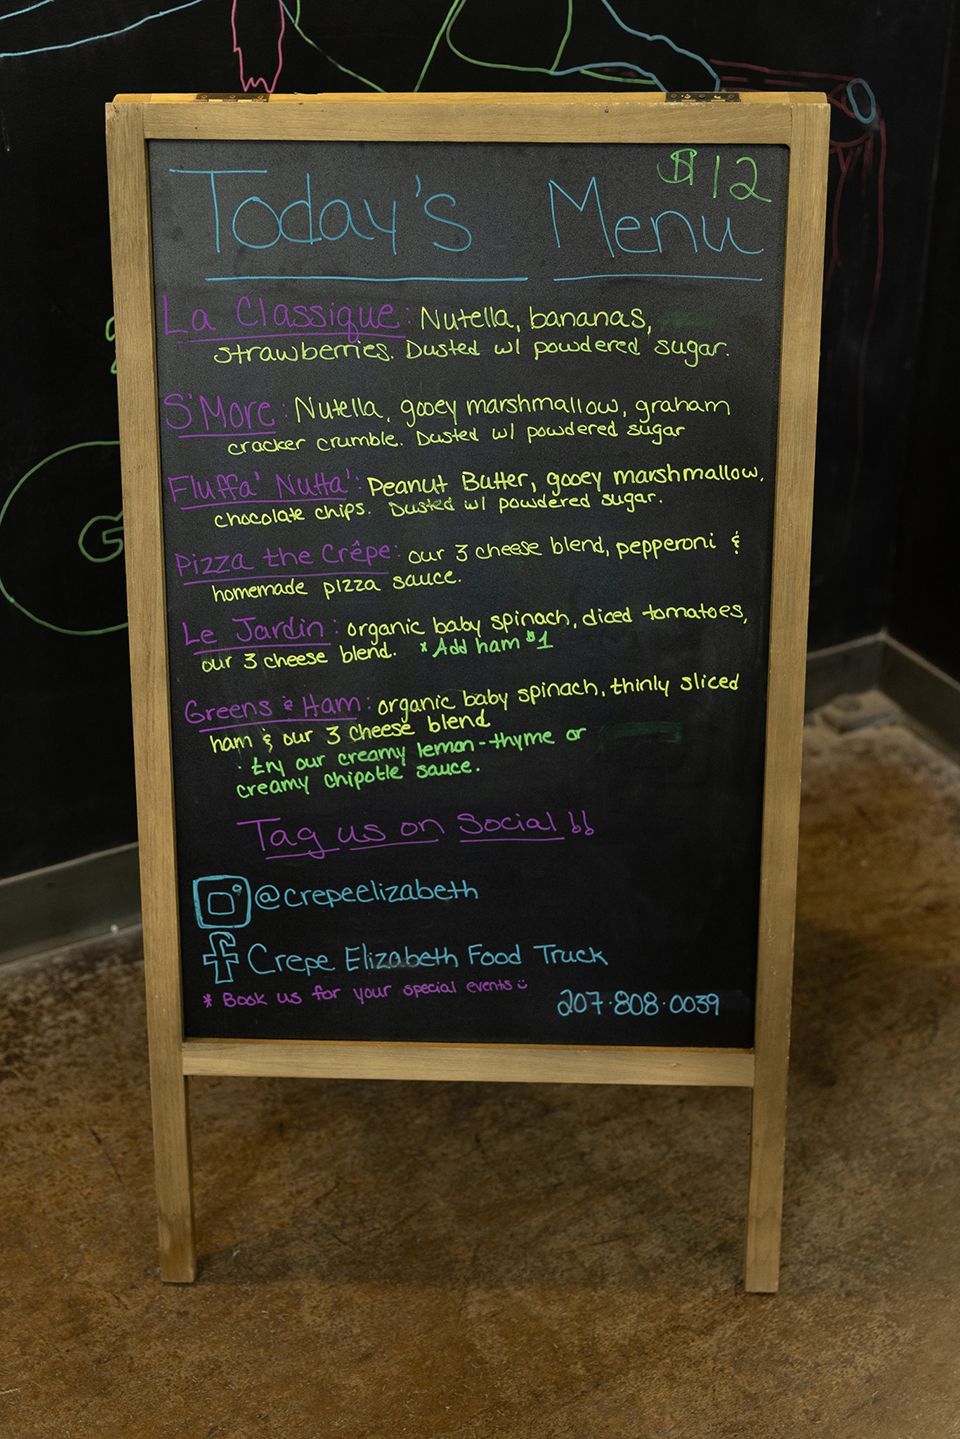 $12
Today's Menu
La Classique: Nutella, bananas,
strawberries. Dusted w/ powdered sugar.
S'More: Nutella, gooey marshmallow, graham
cracker crumble. Dusted w/ powdered sugar
Fluffa' Nutta': Peanut Butter, gooey marshmallow,
chocolate chips. Dusted w/ powdered sugar.
Pizza the Crêpe: our 3 cheese blend, pepperoni &
homemade pizza sauce.
Le Jardin: organic baby spinach, diced tomatoes,
our 3 cheese blend. *Add ham $1
Greens & Ham: organic baby spinach, thinly sliced
ham & our 3 cheese blend
· try our creamy lemon-thyme or
creamy chipotle sauce.
Tag us on Social!!
@crepeelizabeth
f Crepe Elizabeth Food Truck
* Book us for your special events
207·808·0039
G